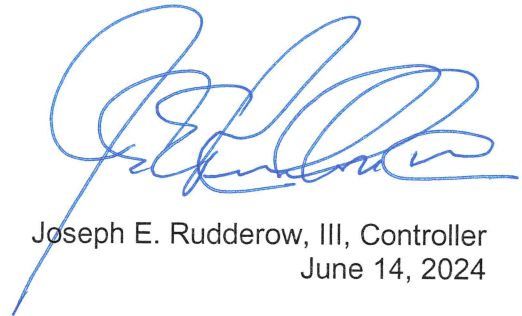 Joseph E. Rudderow, III, Controller
June 14, 2024